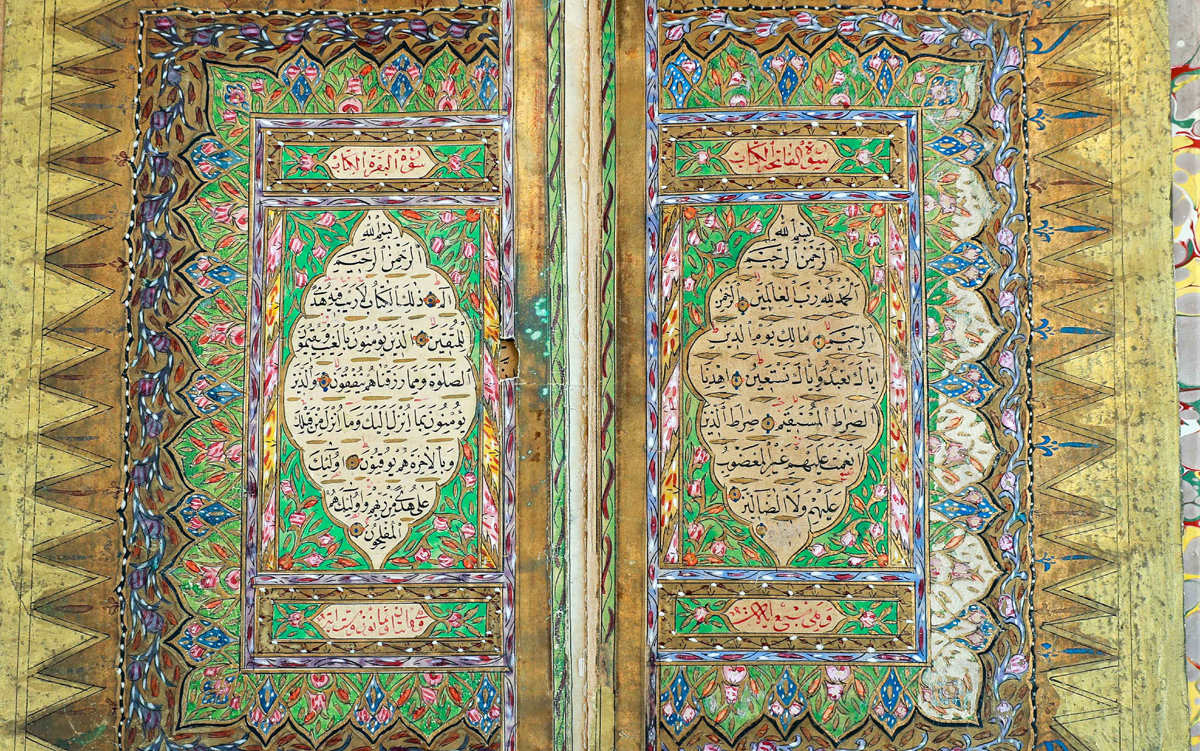 سورة الفاتحة الكتاب
بسم الله
الرحمن الرحيم
الحمد لله رب العالمين الرحمن
الرحيم مالك يوم الدين
اياك نعبد واياك نستعين اهدنا
الصراط المستقيم صراط الذين
انعمت عليهم غير المغضوب
عليهم ولا الضالين
وهي سبع
سورة البقرة الكتاب
بسم الله
الرحمن الرحيم
الم ذلك الكتاب لا ريب فيه هدى
للمتقين الذين يؤمنون بالغيب ويقيمون
الصلوة ومما رزقناهم ينفقون والذين
يؤمنون بما انزل اليك وما انزل من قبلك
وبالاخرة هم يوقنون اولئك
على هدى من ربهم واولئك هم
المفلحون